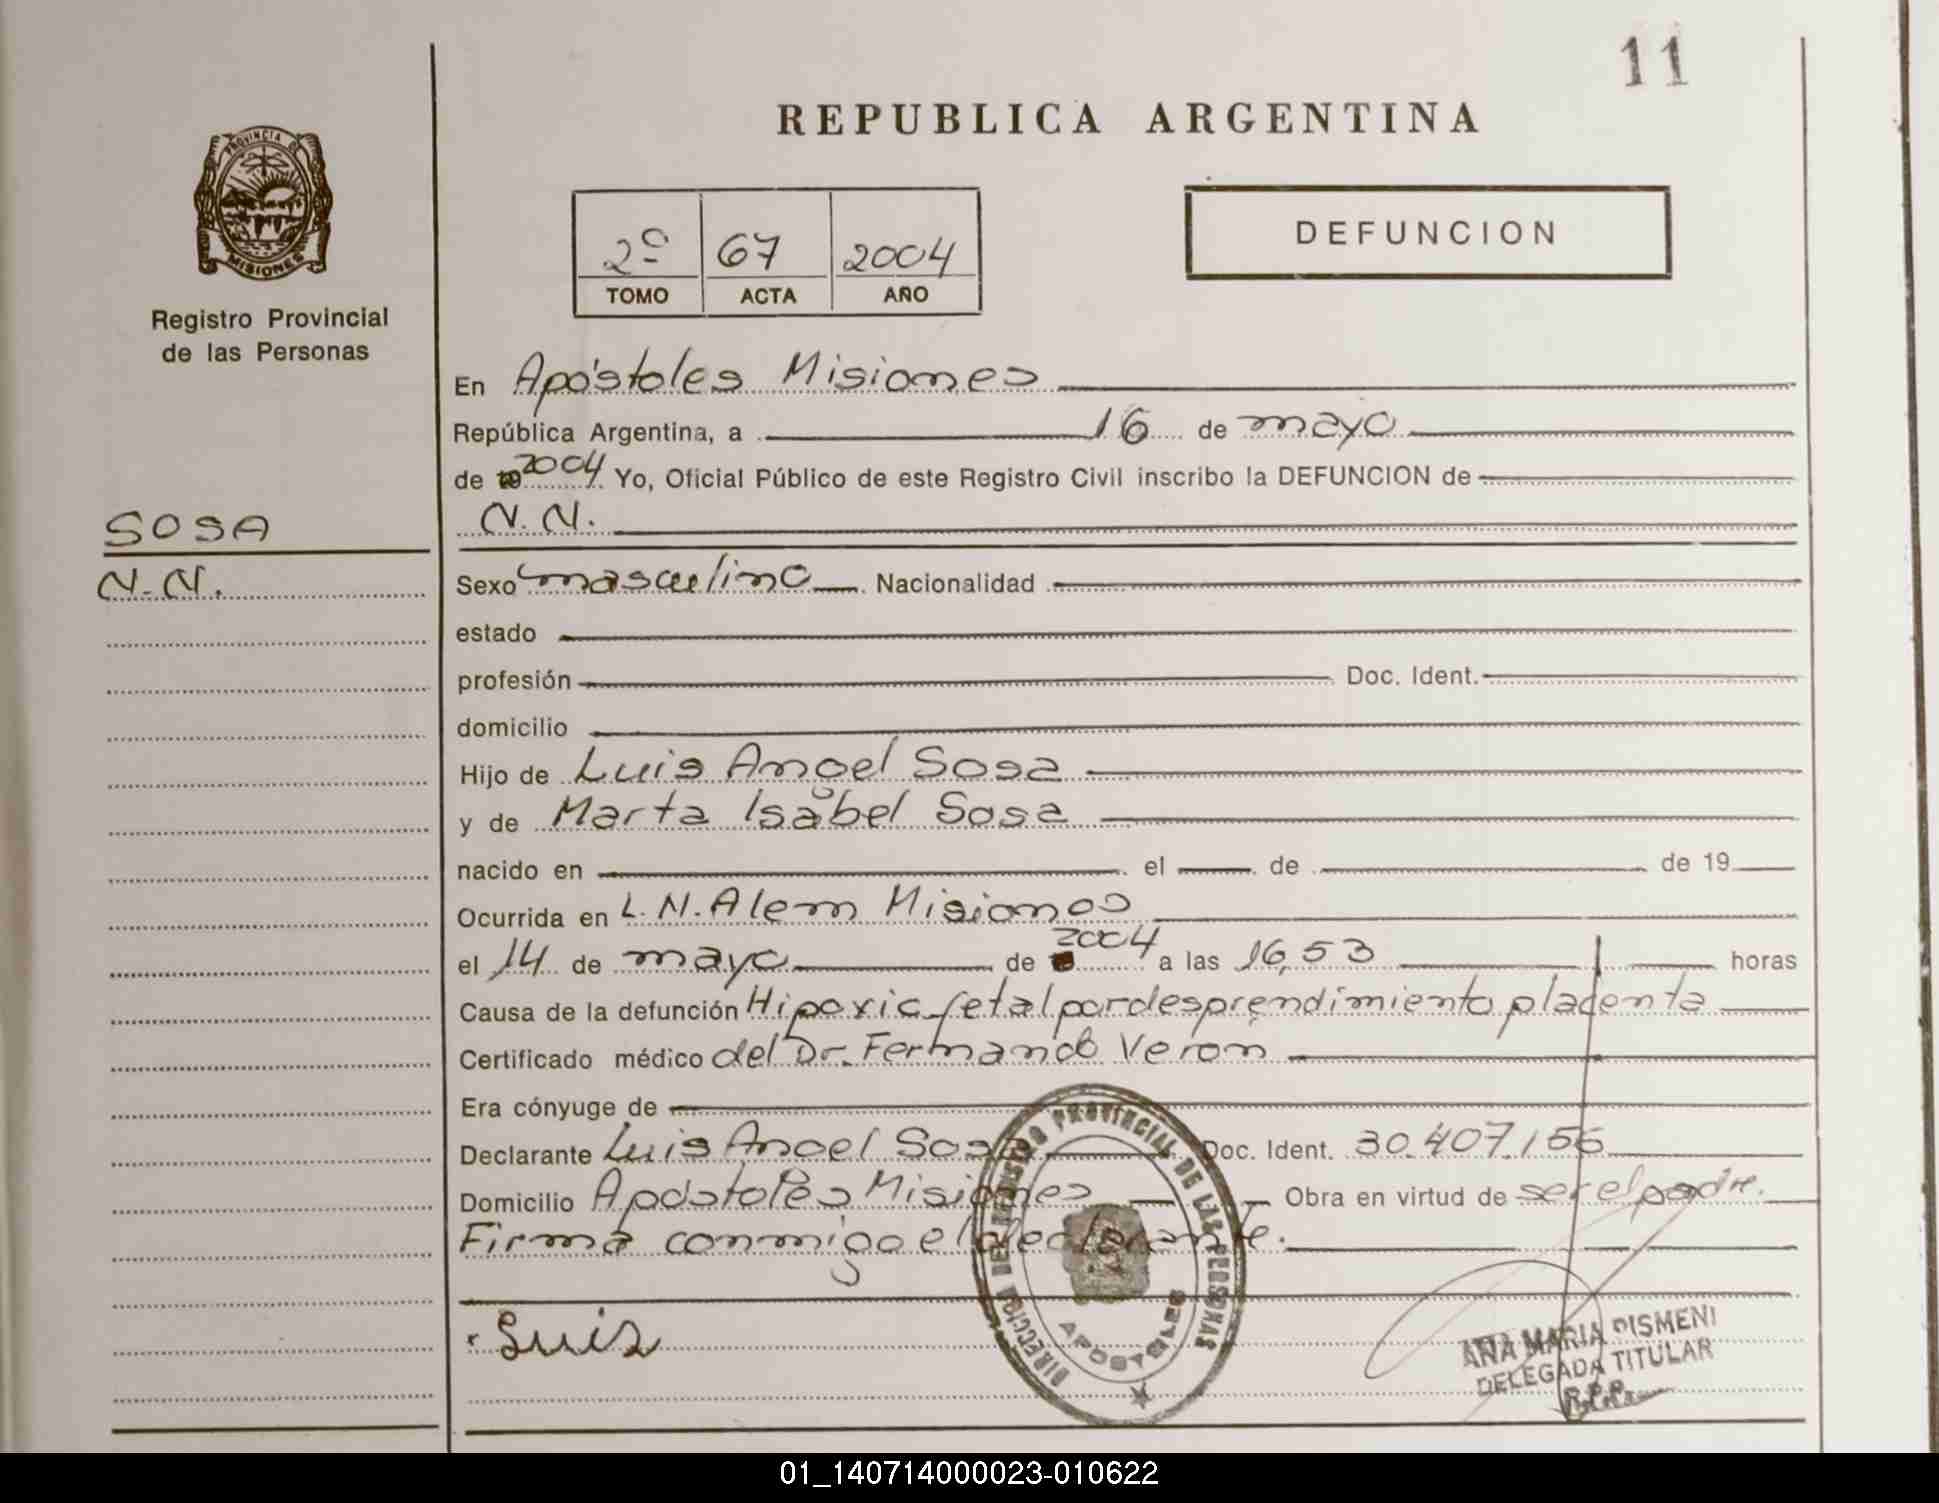 11
REPUBLICA ARGENTINA
PROVINCIA DE
MISIONES
Registro Provincial
de las Personas
2º 67 2004
TOMO ACTA AÑO
DEFUNCION
En Apóstoles Misiones
República Argentina, a 16 de mayo
de 2004 Yo, Oficial Público de este Registro Civil inscribo la DEFUNCION de
N.N.
SOSA
N.N.
Sexo masculino Nacionalidad
estado
profesión Doc. Ident.
domicilio
Hijo de Luis Angel Sosa
y de Marta Isabel Sosa
nacido en el de de 19
Ocurrida en L.N.Alem Misiones
el 14 de mayo de 2004 a las 16,53 horas
Causa de la defunción Hipoxia fetal por desprendimiento placenta
Certificado médico del Dr. Fernando Veron
Era cónyuge de
Declarante Luis Angel Sosa Doc. Ident. 30.407.156
Domicilio Apóstoles Misiones Obra en virtud de ser el padre.
Firma conmigo el declarante.
Luis
DIRECCION DEL REGISTRO PROVINCIAL DE LAS PERSONAS
APOSTOLES
ANA MARIA PISMENI
DELEGADA TITULAR
R.P.P.
01_140714000023-010622